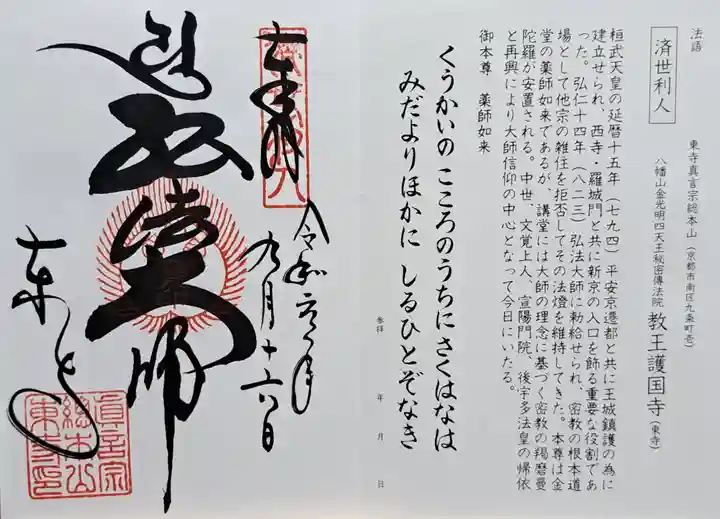 法語
済世利人
東寺真言宗総本山(京都市南区九条町壱)
八幡山金光明四天王秘密傳法院 教王護国寺(東寺)
桓武天皇の延暦十五年(七九四)平安京遷都と共に王城鎮護の為に
建立せられ、西寺・羅城門と共に新京の入口を飾る重要な役割であ
った。弘仁十四年(八二三)弘法大師に勅給せられ、密教の根本道
場として他宗の雑住を拒否してその法燈を維持してきた。本尊は金
堂の薬師如来であるが、講堂には大師の理念に基づく密教の羯磨曼
陀羅が安置される。中世、文覚上人、宣陽門院、後宇多法皇の帰依
と再興により大師信仰の中心となって今日にいたる。
御本尊 薬師如来
くうかいの こころのうちにさくはなは
みだよりほかに しるひとぞなき
参拝 年 月 日
奉拝
令和六年
九月十六日
弘法大師
東寺
真言宗
総本山
東寺印